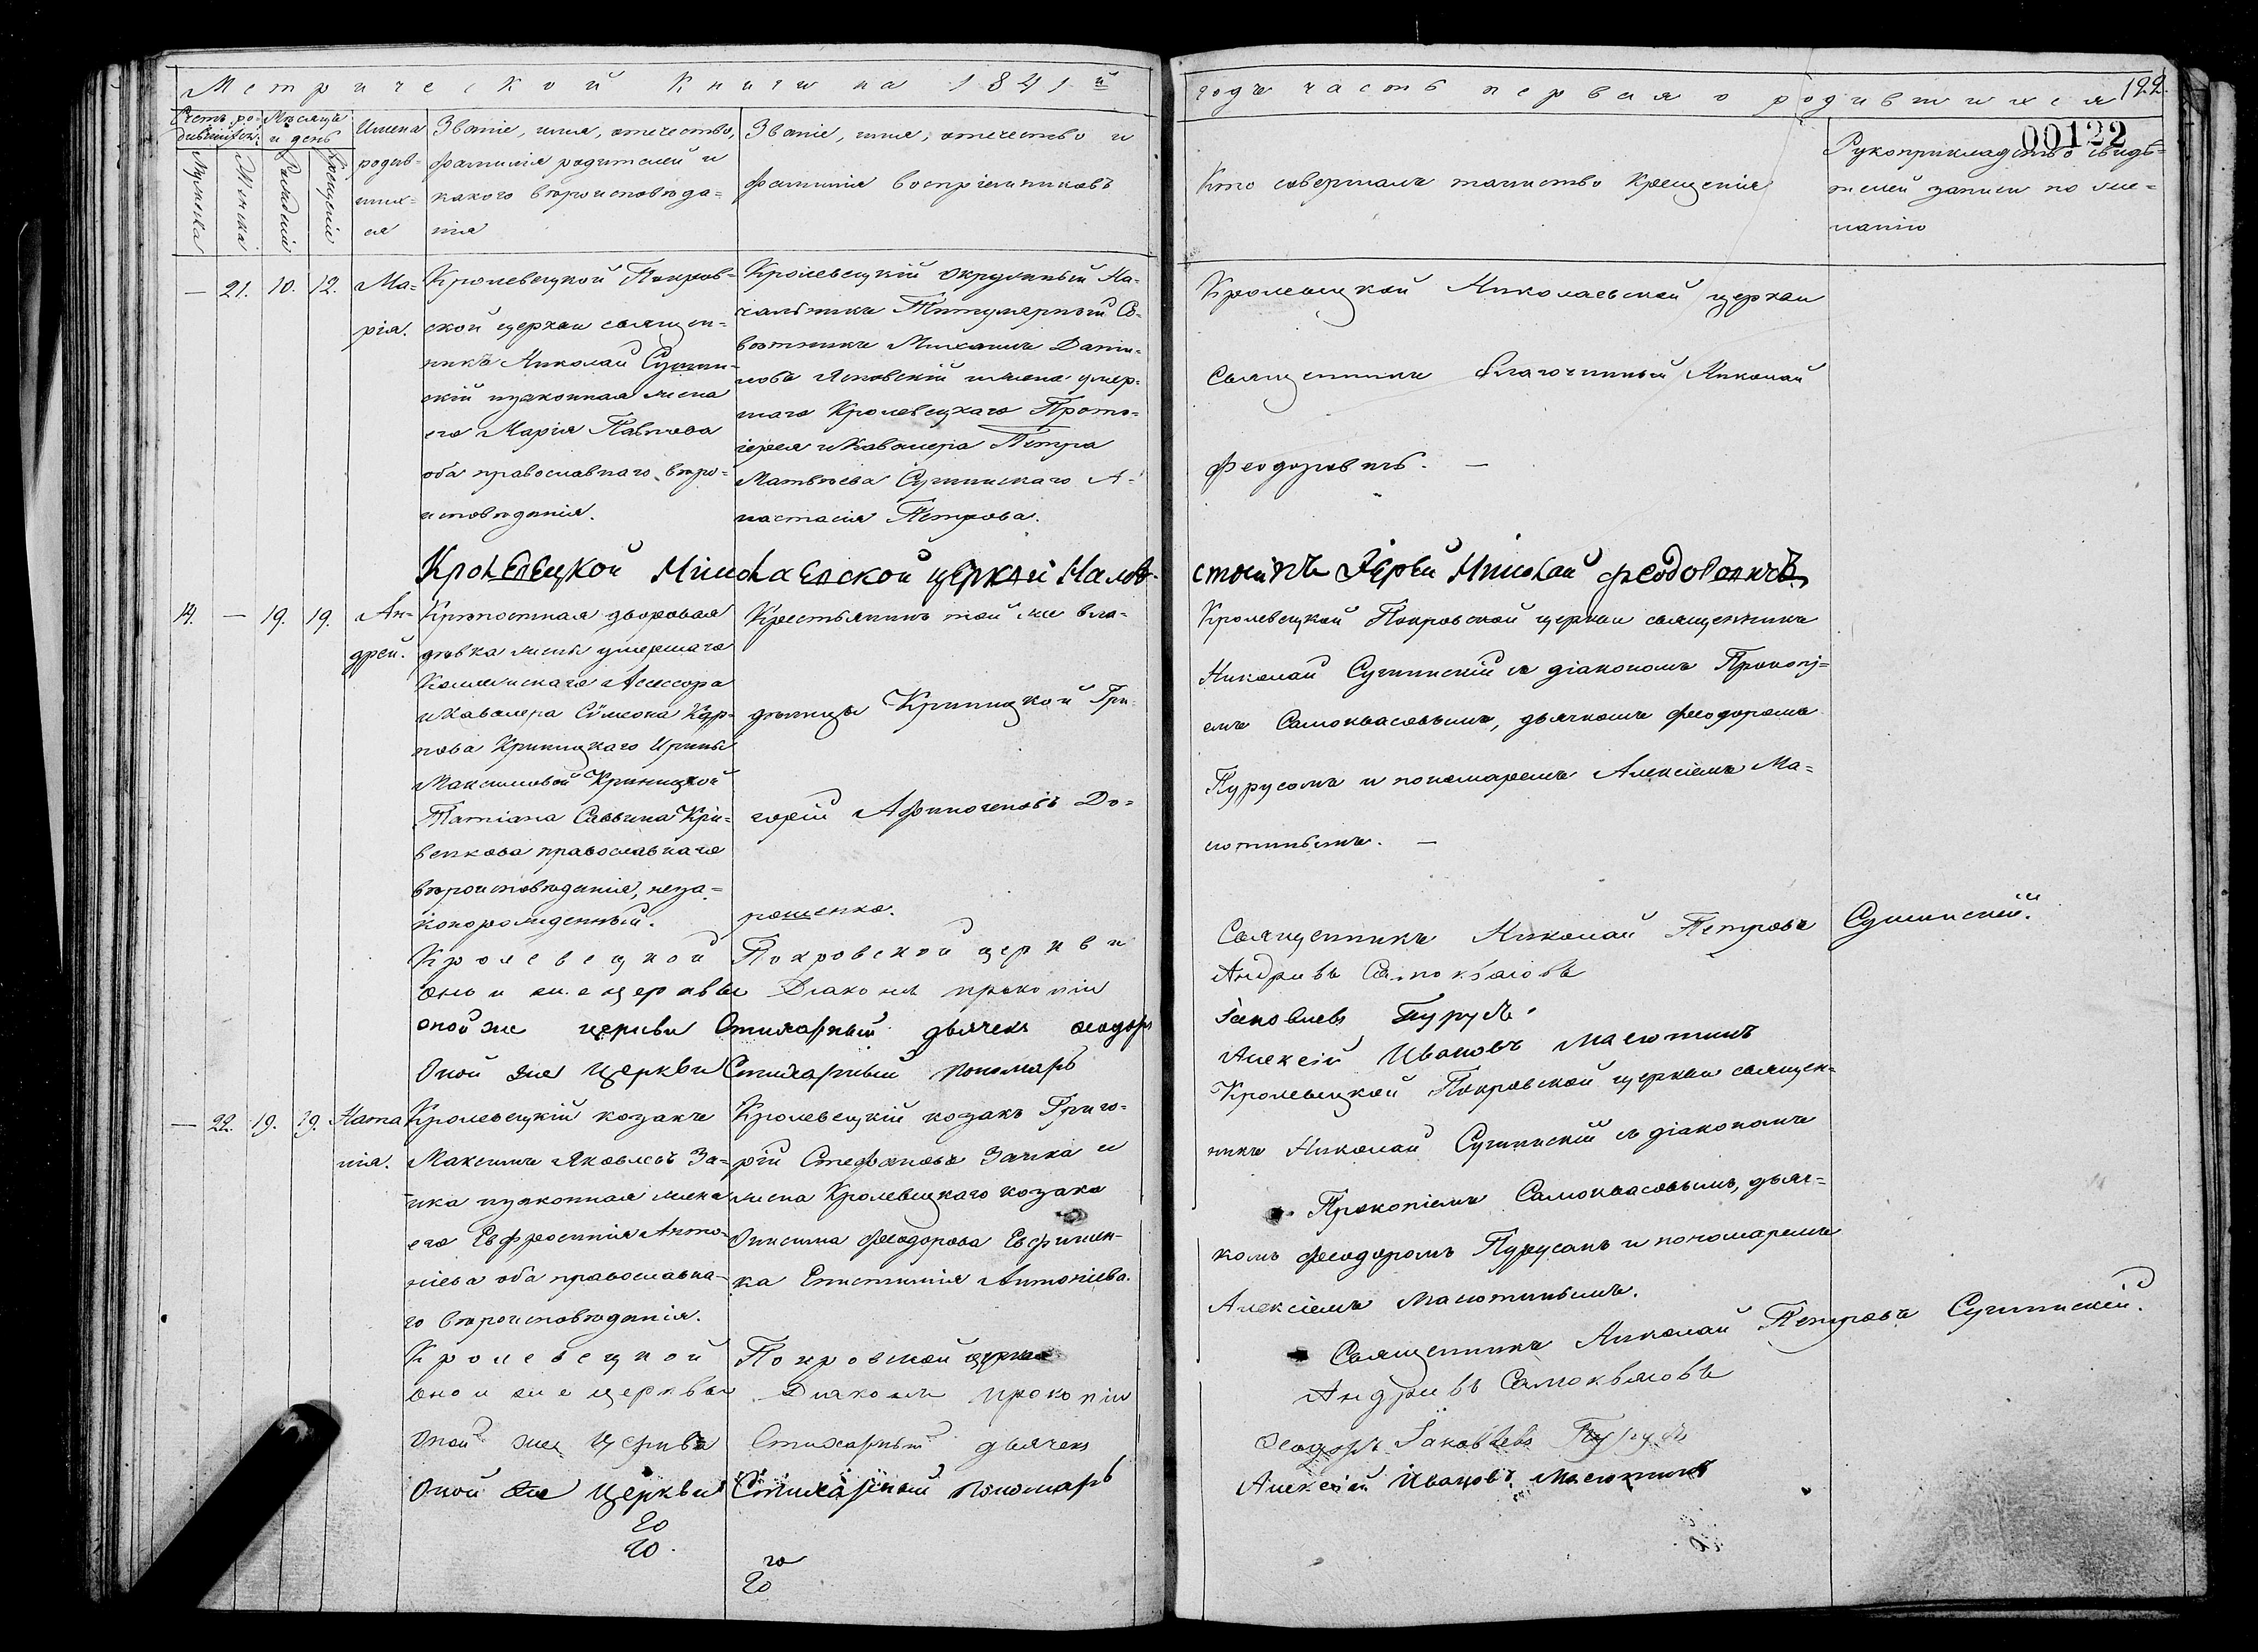 Метрической Книги на 1841й
годъ часть первая о родившихся
122.
00122
Счетъ ро-
дившихся.
Мѣсяцъ
и день
Мужеска
Женска
Рожденія
Крещенія
Имена
родив-
ших-
ся
Званіе, имя, отечество,
фамилія родителей и
какого вѣроисповѣда-
нія
Званіе, имя, отечество и
фамилія воспріемниковъ
Кто совершалъ таинство Крещенія
Рукоприкладство свидѣ-
телей записи по же-
ланію
— 21. 10. 12.
Ма-
рія.
Кролевецкой Покров-
ской церкви священ-
никъ Николай Сушин-
скій изаконная жена
его Марія Павлова
оба православнаго вѣро-
исповѣданія.
Кролевецкій Окружный На-
чальникъ Титулярный Со-
вѣтникъ Михаилъ Дани-
ловъ Ясновскій ижена умер-
шаго Кролевецкаго Прото-
іерея иКавалера Петра
Матвѣева Сушинскаго А-
настасія Петрова.
Кролевецкой Николаевской церкви
Священникъ благочинный Николай
Феодоровичъ. —
Кролевецкой Николаевской церкви Насто-
стоятель Іерей Николай Феодоровичъ
14. — 19. 19.
Ан-
дрей.
Крѣпостная дворовая
дѣвка жены умершаго
Коллежскаго Асессора
иКавалера Сѵмеона Кар-
пова Криницкаго Ирины
Максимовой Криницкой
Татіана Саввина Кри-
венкова православнаго
вѣроисповѣданія, неза-
конорожденный.
Крестьянинъ той же вла-
дѣлицы Криницкой Гри-
горій Афиногеновъ До-
рошенко.
Кролевецкой Покровской церкви священникъ
Николай Сушинскій съ діакономъ Прокопі-
емъ Самоквасовымъ, дьячкомъ Феодоромъ
Пурусомъ и пономаремъ Алексіемъ Ма-
лютинымъ. —
Кролевецкой Покровской церкви
Священникъ Николай Петровъ Сушинскій.
оной же церквы Діаконъ прокопій
Андривъ Самоквасовъ
оной же церкви Стихарный дьячекъ Феодоръ
Іаковлевъ Пурусъ.
Оной же Церкви Стихарный пономарь
Алексій Ивановъ Малютинъ
— 22. 19. 19.
Ната
лія.
Кролевецкій козакъ
Максимъ Яковлевъ За-
ика изаконная жена
его Евфросинія Анто-
ніева оба православна-
го вѣроисповѣданія.
Кролевецкій козакъ Григо-
рій Стефановъ Заика и
жена Кролевецкаго козака
Онисима Феодорова Евфимен-
ка Епистимія Антоніева.
Кролевецкой Покровской церкви священ-
никъ Николай Сушинскій съ діакономъ
Прокопіемъ Самоквасовымъ, дьяч-
комъ Феодоромъ Пурусомъ и пономаремъ
Алексіемъ Малютинымъ.
Кролевецкой Покровской церкви
Священникъ Николай Петровъ Сушинскій.
оной же церквы Діаконъ прокопій
Андривъ Самоквасовъ
Оной же Церкви Стихарный дьячекъ
Феодоръ Іаковлевъ Пурусъ
Оной же Церкви Стихарный пономарь
Алексій Ивановъ Малютинъ